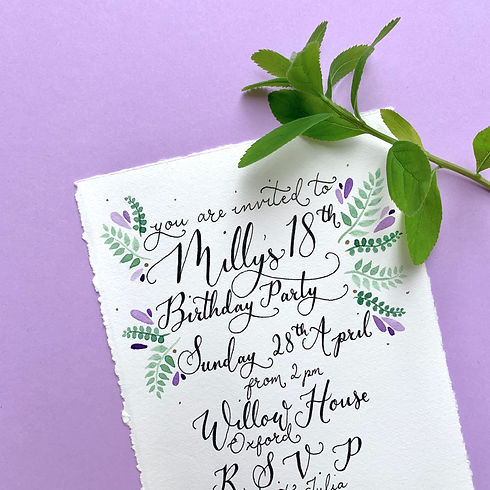 you are invited to
Milly's 18th
Birthday Party
Sunday 28th April
from 2 pm
Willow House
Oxford
R S V P
Julia